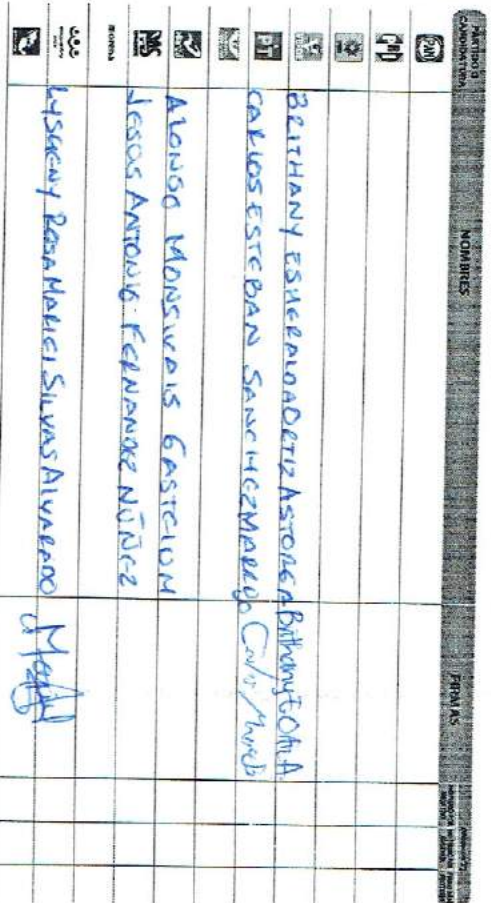 PARTIDO O CANDIDATURA NOMBRES FIRMAS
PAN
PRD
BRITHANY ESMERALDA ORTIZ ASTORGA Brithany E O A
PT CARLOS ESTEBAN SANCHEZ MARRUJO
ALONSO MONSIVAIS GASTELUM
PAS JESÚS ANTONIO FERNANDEZ NÚÑEZ
morena
LYSHENY ROSA MARIEL SILVAS ALVARADO